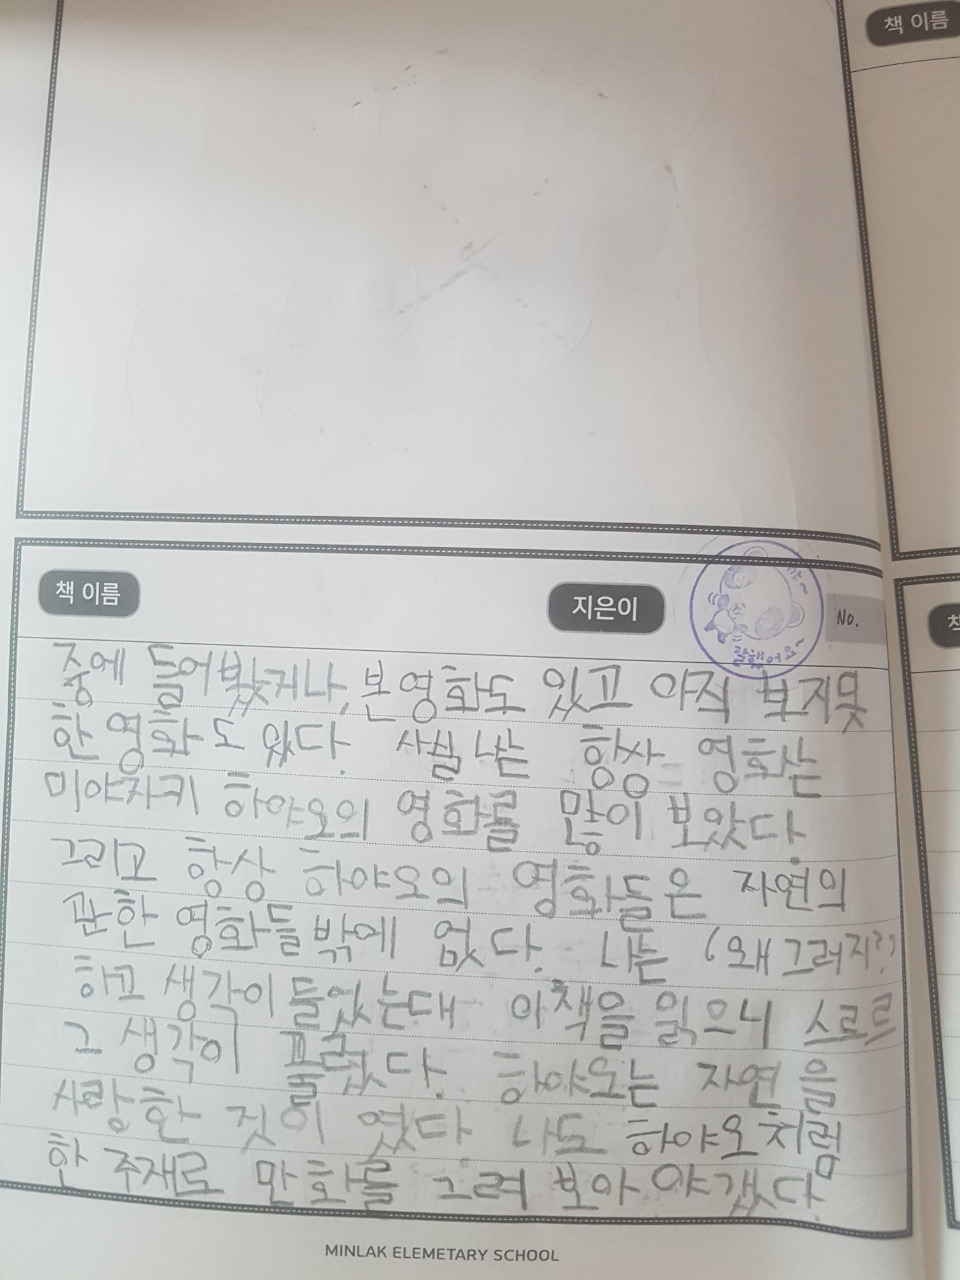 책 이름
책 이름 지은이 No.
잘했어요~
중에 들어봤거나, 본 영화도 있고 아직 보지못
한 영화도 있다. 사실 나는 항상 영화는
미야자키 하야오의 영화를 많이 보았다.
그리고 항상 하야오의 영화들은 자연의
관한 영화들 밖에 없다. 나는 (왜 그러지?)
하고 생각이 들었는대 이책을 읽으니 스르르
그 생각이 풀렸다. 하야오는 자연을
사랑한 것이 였다. 나도 하야오처럼
한 주재로 만화를 그려 보아 야겠다.
MINLAK ELEMETARY SCHOOL